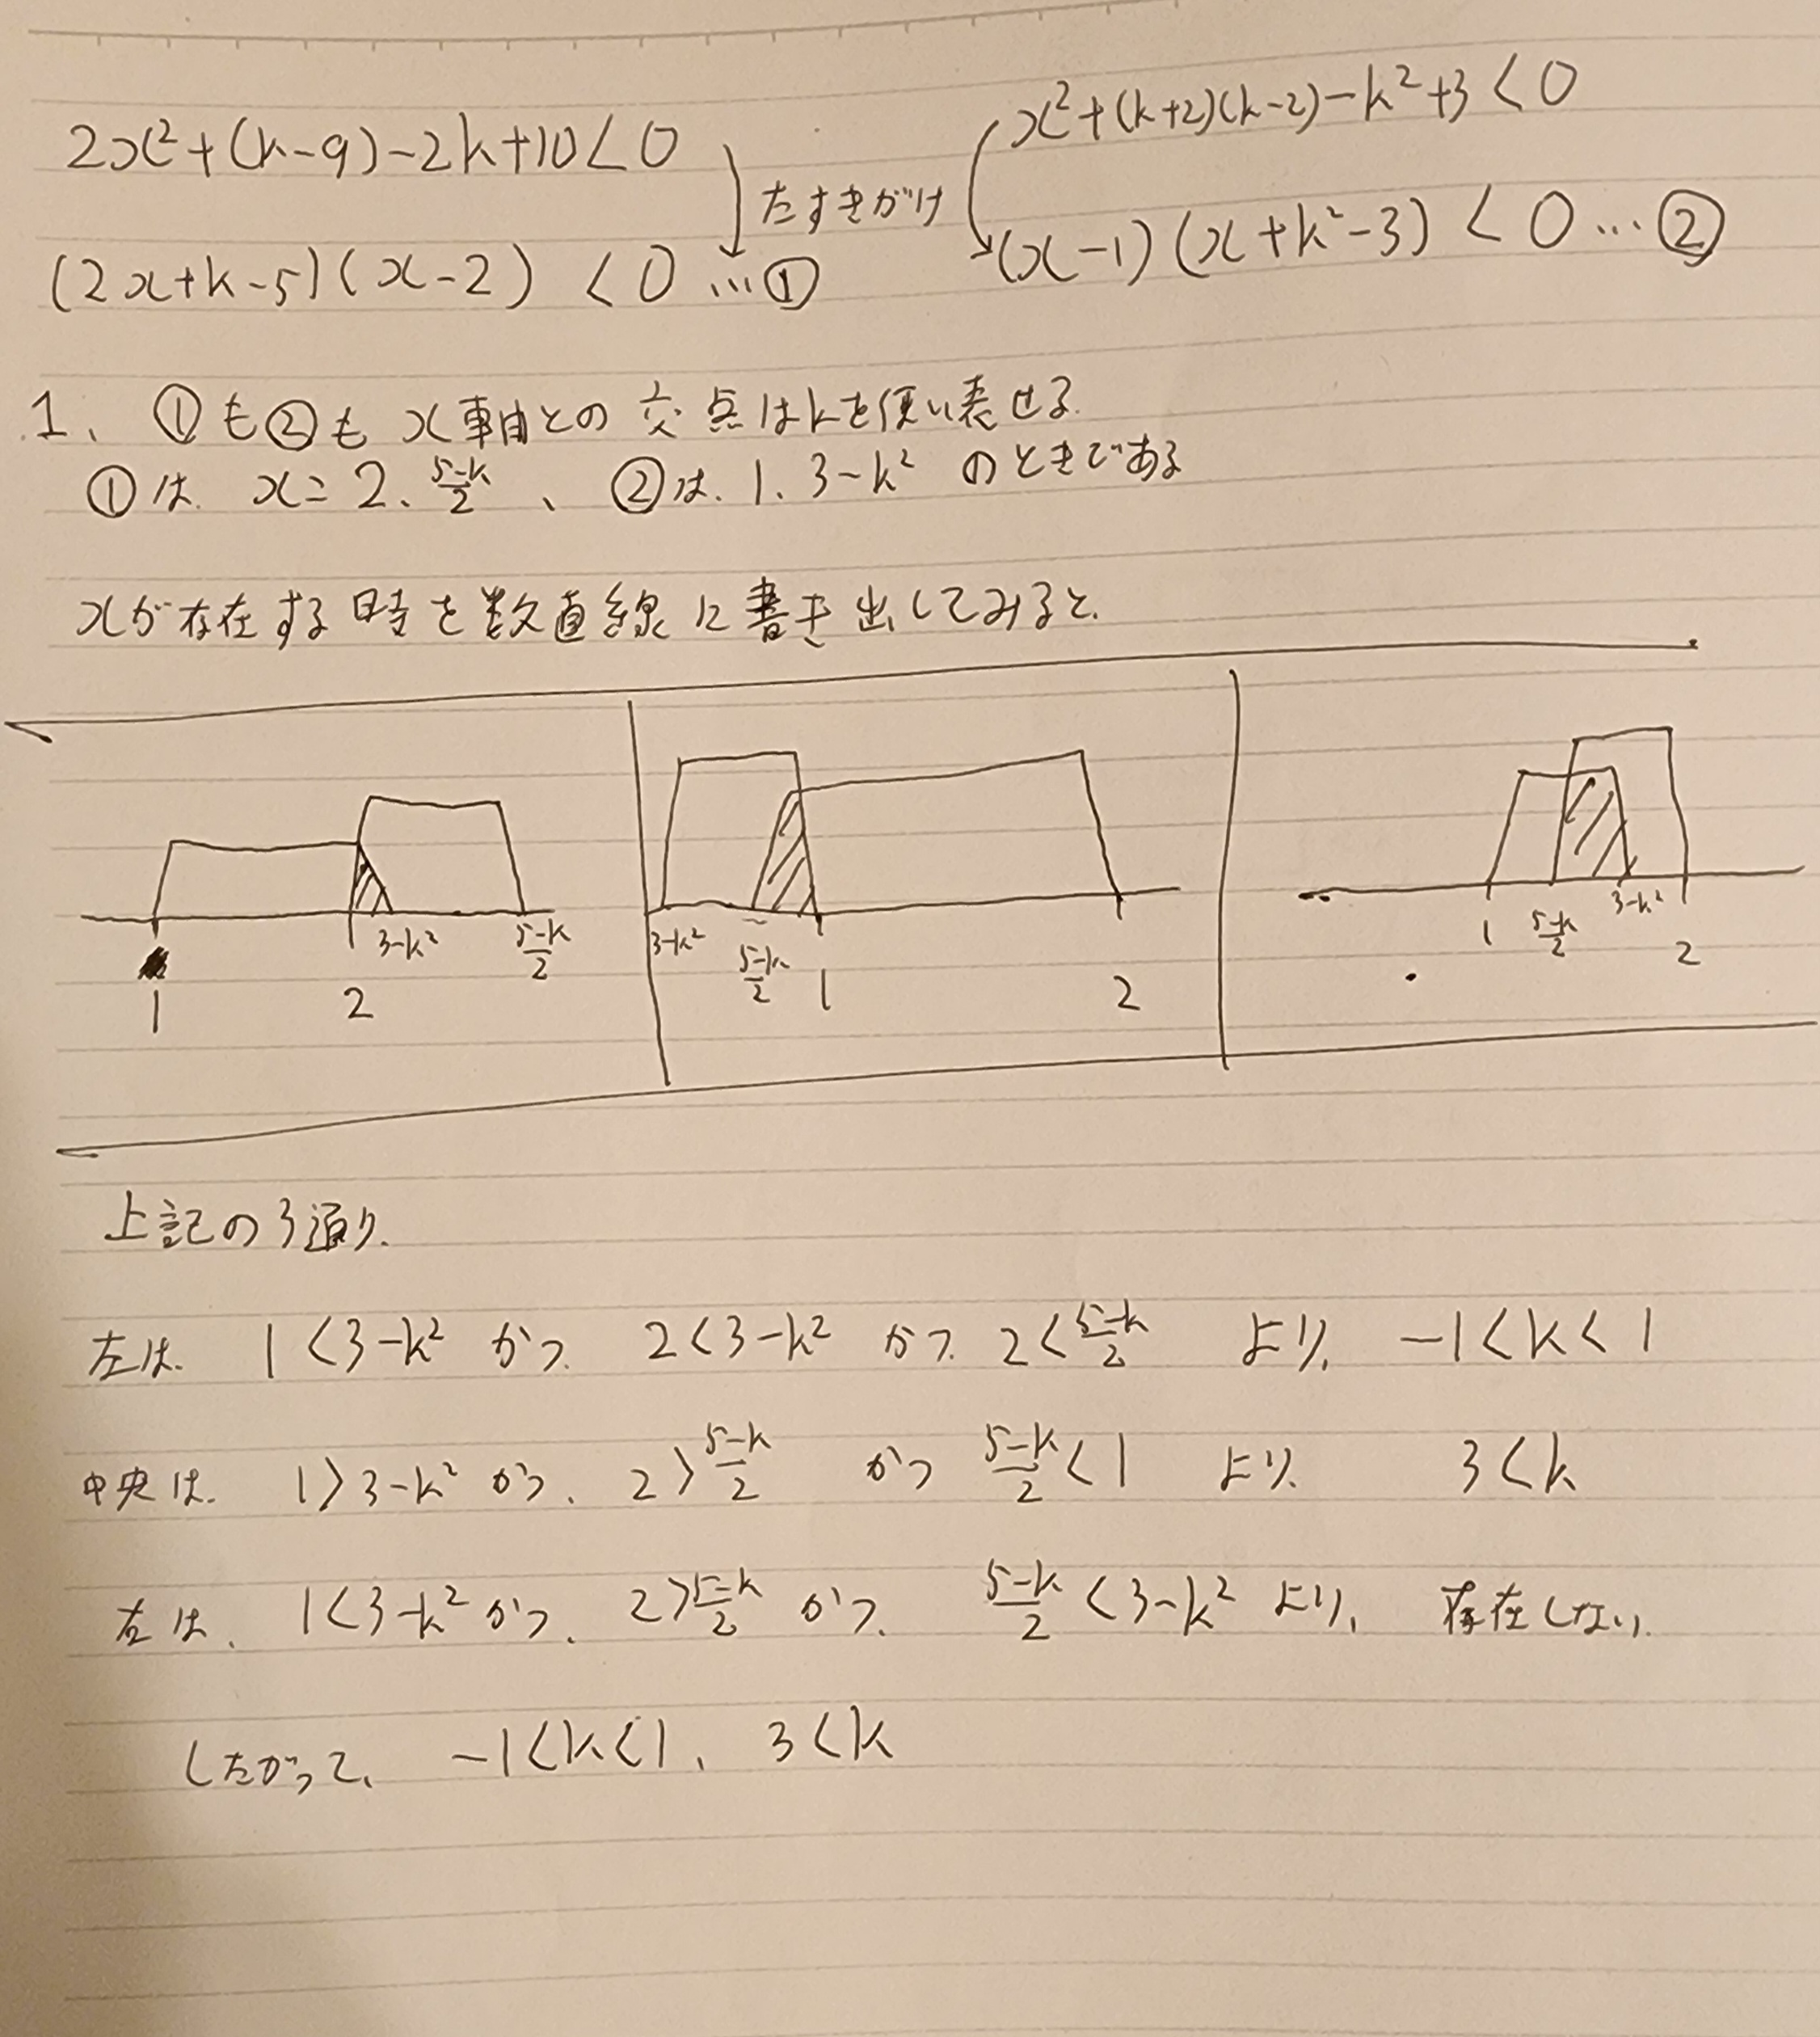 2x²+(k-9)-2k+10<0
たすきがけ
(2x+k-5)(x-2) <0 …①
x²+(k+2)(k-2)-k²+3<0
(x-1)(x+k²-3) <0…②
1、①も②も x軸との交点はkを使い表せる
①は x=2、(5-k)/2 、②は、1、3-k² のときである
xが存在する時を数直線に書き出してみると、
1 2 3-k² (5-k)/2
3-k² (5-k)/2 1 2
1 (5-k)/2 3-k² 2
上記の3通り、
左は、1<3-k² かつ、2<3-k² かつ、2<(5-k)/2 より、-1<k<1
中央は、1>3-k² かつ、2>(5-k)/2 かつ (5-k)/2<1 より、3<k
右は、1<3-k² かつ、2>(5-k)/2 かつ、(5-k)/2<3-k² より、存在しない、
したがって、-1<k<1、3<k